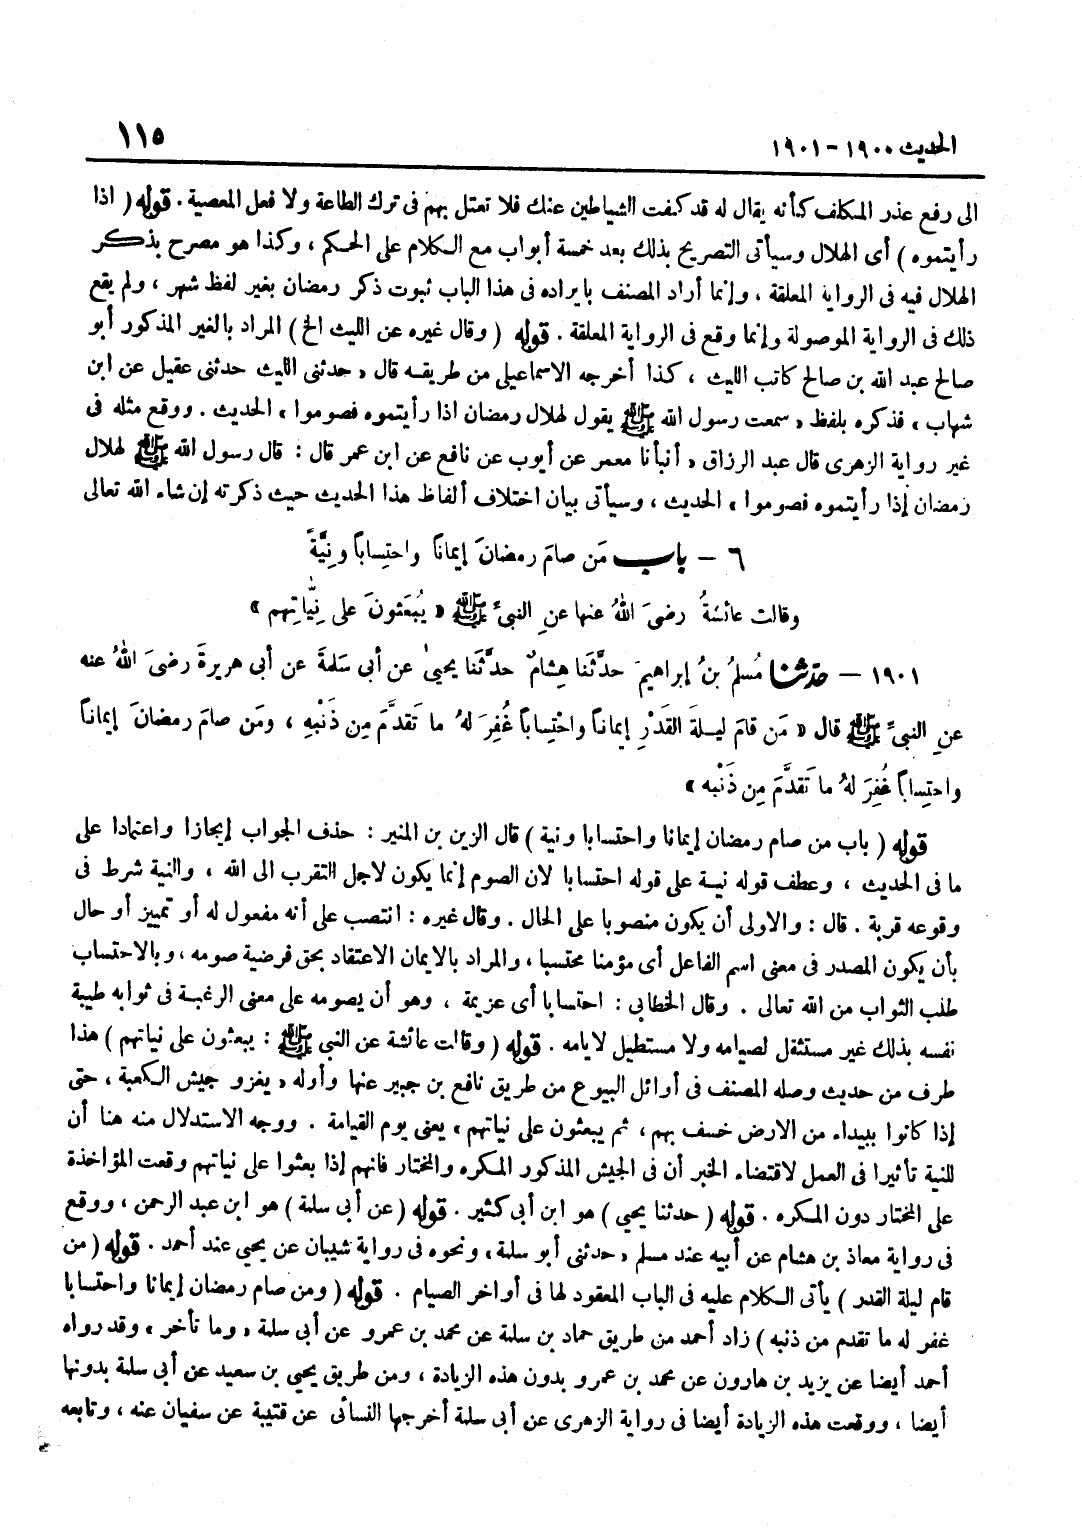 الحديث ١٩٠٠ – ١٩٠١
١١٥
الى رفع عذر المكلف كأنه يقال له قد كفت الشياطين عنك فلا تعتل بهم فى ترك الطاعة ولا فعل المعصية . قوله ( اذا
رأيتموه ) أى الهلال وسيأتى التصريح بذلك بعد خمسة أبواب مع الكلام على الحكم ، وكذا هو مصرح بذكر
الهلال فيه فى الرواية المعلقة ، وإنما أراد المصنف بايراده فى هذا الباب ثبوت ذكر رمضان بغير لفظ شهر ، ولم يقع
ذلك فى الرواية الموصولة وإنما وقع فى الرواية المعلقة . قوله ( وقال غيره عن الليث الخ ) المراد بالغير المذكور أبو
صالح عبد الله بن صالح كاتب الليث ، كذا أخرجه الاسماعيلى من طريقه قال « حدثنى الليث حدثنى عقيل عن ابن
شهاب ، فذكره بلفظ « سمعت رسول الله ﷺ يقول لهلال رمضان اذا رأيتموه فصوموا » الحديث . ووقع مثله فى
غير رواية الزهرى قال عبد الرزاق « أنبأنا معمر عن أيوب عن نافع عن ابن عمر قال : قال رسول الله ﷺ لهلال
رمضان إذا رأيتموه فصوموا » الحديث ، وسيأتى بيان اختلاف ألفاظ هذا الحديث حيث ذكرته إن شاء الله تعالى
٦ – باب مَن صامَ رمضانَ إيمانًا واحتِسابًا ونِيَّةً
وقالت عائشةُ رضىَ اللهُ عنها عنِ النبىِّ ﷺ « يُبعَثونَ على نِيّاتِهم »
١٩٠١ – حدثنا مُسلمُ بنُ إبراهيمَ حدَّثَنا هِشامٌ حدَّثَنا يحيىٰ عن أبى سَلمةَ عن أبى هريرةَ رضىَ اللهُ عنه
عنِ النبىِّ ﷺ قال « مَن قامَ ليلةَ القَدْرِ إيمانًا واحْتِسابًا غُفِرَ لهُ ما تَقدَّمَ مِن ذَنْبِهِ ، ومَن صامَ رمضانَ إيمانًا
واحتِسابًا غُفِرَ لهُ ما تَقدَّمَ مِن ذَنْبه »
قوله ( باب من صام رمضان إيمانا واحتسابا ونية ) قال الزين بن المنير : حذف الجواب إيجازا واعتمادا على
ما فى الحديث ، وعطف قوله نية على قوله احتسابا لان الصوم إنما يكون لاجل التقرب الى الله ، والنية شرط فى
وقوعه قربة . قال : والاولى أن يكون منصوبا على الحال . وقال غيره : انتصب على أنه مفعول له أو تمييز أو حال
بأن يكون المصدر فى معنى اسم الفاعل أى مؤمنا محتسبا ، والمراد بالايمان الاعتقاد بحق فرضية صومه ، وبالاحتساب
طلب الثواب من الله تعالى . وقال الخطابى : احتسابا أى عزيمة ، وهو أن يصومه على معنى الرغبة فى ثوابه طيبة
نفسه بذلك غير مستثقل لصيامه ولا مستطيل لايامه . قوله ( وقالت عائشة عن النبى ﷺ : يبعثون على نياتهم ) هذا
طرف من حديث وصله المصنف فى أوائل البيوع من طريق نافع بن جبير عنها وأوله « يغزو جيش الكعبة ، حتى
إذا كانوا ببيداء من الارض خسف بهم ، ثم يبعثون على نياتهم » يعنى يوم القيامة . ووجه الاستدلال منه هنا أن
للنية تأثيرا فى العمل لاقتضاء الخبر أن فى الجيش المذكور المكره والمختار فانهم إذا بعثوا على نياتهم وقعت المؤاخذة
على المختار دون المكره . قوله ( حدثنا يحيى ) هو ابن أبى كثير . قوله ( عن أبى سلمة ) هو ابن عبد الرحمن ، ووقع
فى رواية معاذ بن هشام عن أبيه عند مسلم « حدثنى أبو سلمة » ونحوه فى رواية شيبان عن يحيى عند أحمد . قوله ( من
قام ليلة القدر ) يأتى الكلام عليه فى الباب المعقود لها فى أواخر الصيام . قوله ( ومن صام رمضان إيمانا واحتسابا
غفر له ما تقدم من ذنبه ) زاد أحمد من طريق حماد بن سلمة عن محمد بن عمرو عن أبى سلمة « وما تأخر » وقد رواه
أحمد أيضا عن يزيد بن هارون عن محمد بن عمرو بدون هذه الزيادة ، ومن طريق يحيى بن سعيد عن أبى سلمة بدونها
أيضا ، ووقعت هذه الزيادة أيضا فى رواية الزهرى عن أبى سلمة أخرجها النسائى عن قتيبة عن سفيان عنه ، وتابعه